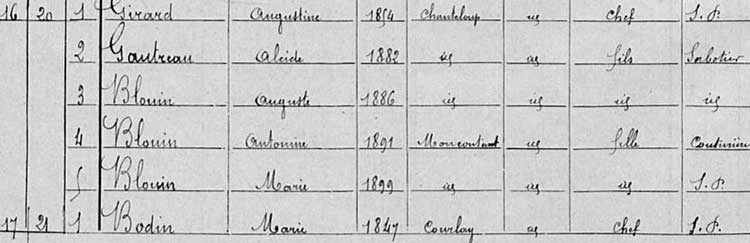 16 20 1 Girard Augustine 1854 Chanteloup id chef S. P.
2 Gautreau Alcide 1882 id id fils Sabotier
3 Blouin Auguste 1886 id id id id
4 Blouin Antonine 1891 Moncoutant id fille Couturière
5 Blouin Marie 1899 id id id S. P.
17 21 1 Bodin Marie 1847 Courlay id chef S. P.